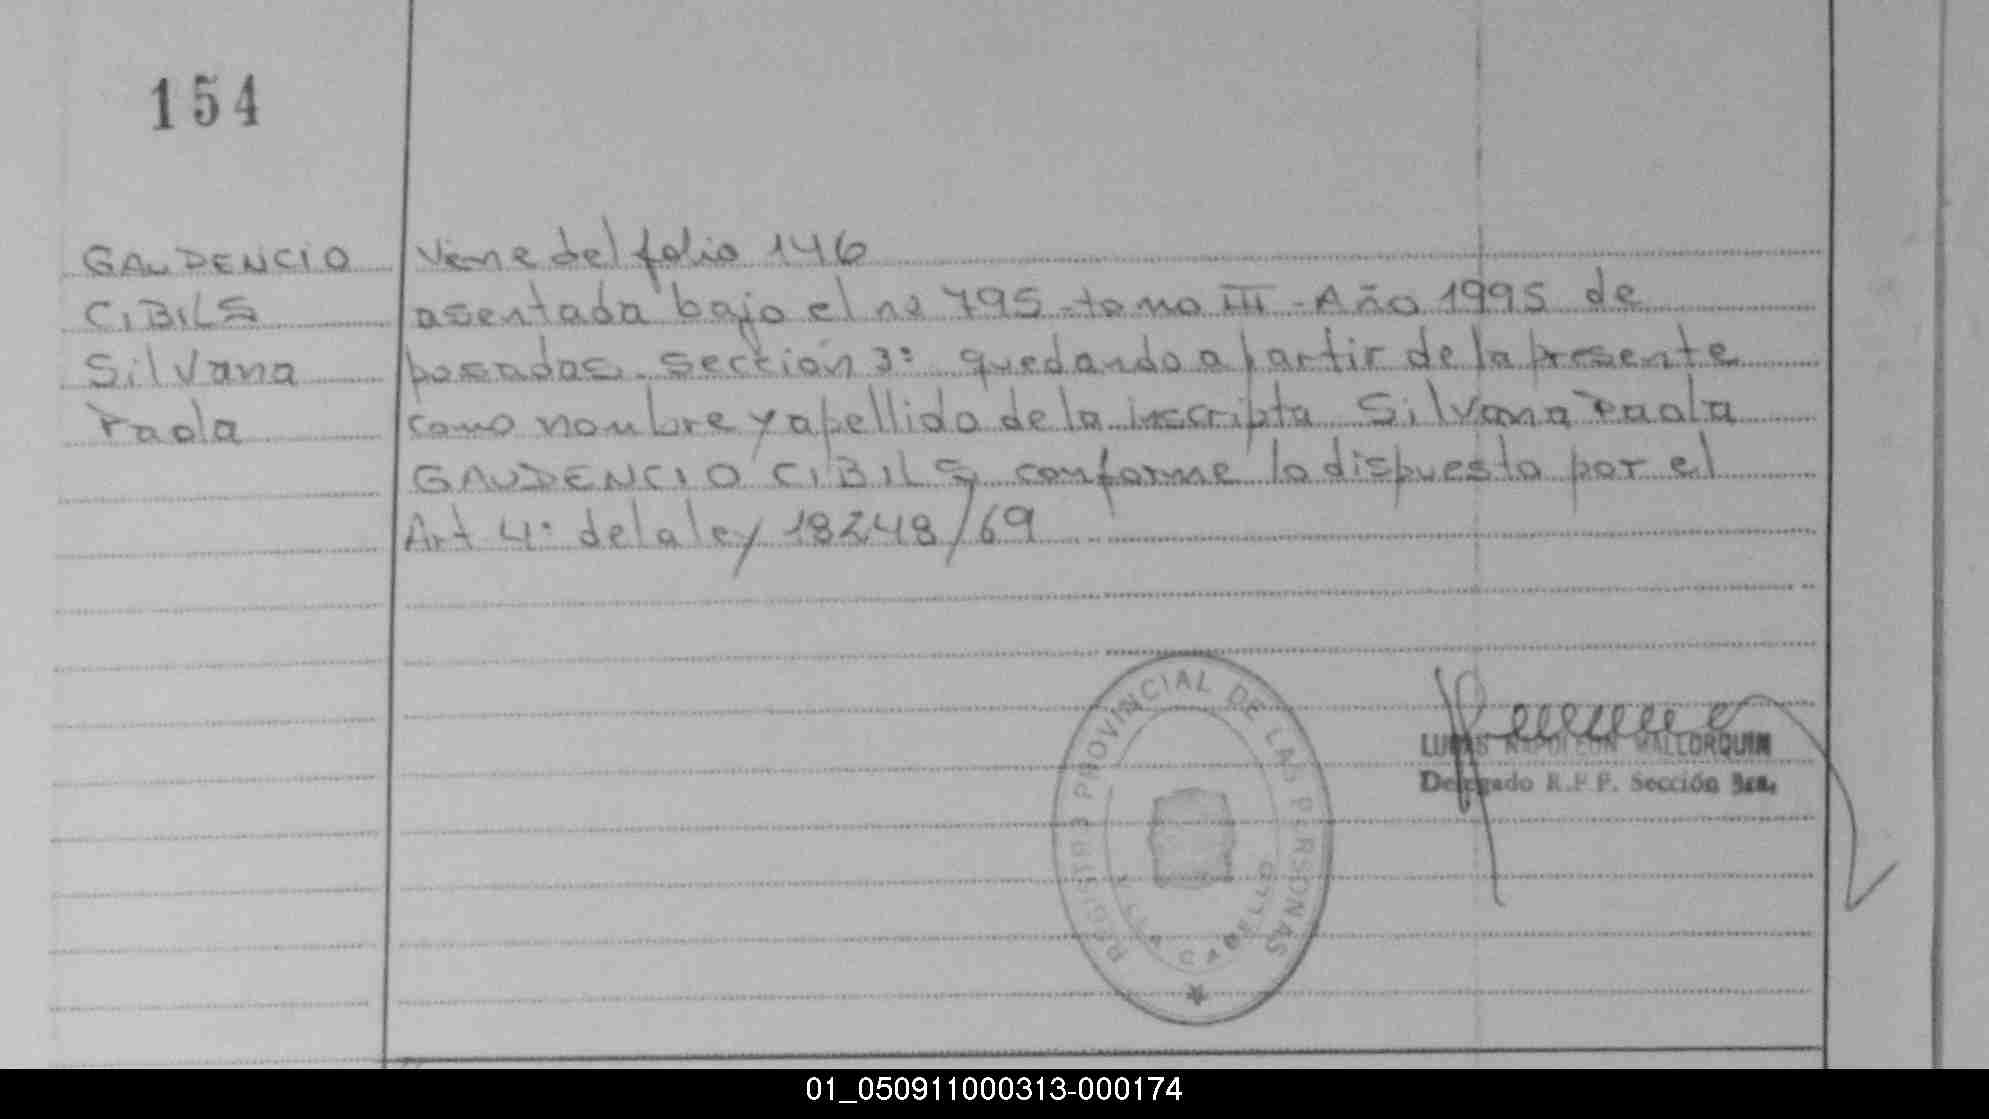 154
GAUDENCIO
CIBILS
Silvana
Paola
Viene del folio 146
asentada bajo el no 795 - tomo III - Año 1995 de
posadas. Sección 3º quedando a partir de la presente
como nombre y apellido de la inscripta Silvana Paola
GAUDENCIO CIBILS conforme lo dispuesto por el
Art 4º de la ley 18248/69
REGISTRO PROVINCIAL DE LAS PERSONAS
VILLA CABELLO
LUCAS NAPOLEON MALLORQUIN
Delegado R.P.P. Sección 3ra.
01_050911000313-000174